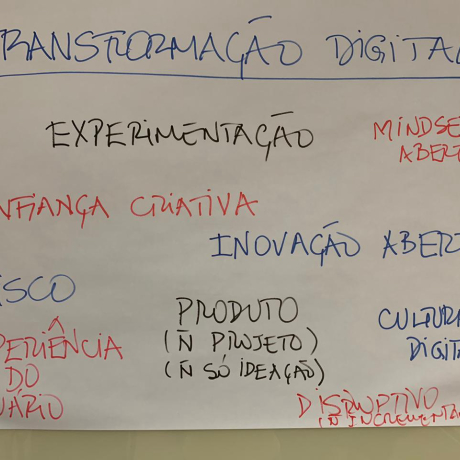 TRANSFORMAÇÃO DIGITAL
EXPERIMENTAÇÃO
MINDSE
ABERT
NFIANÇA CRIATIVA
INOVAÇÃO ABERT
ISCO
PRODUTO
(Ñ PROJETO)
(Ñ SÓ IDEAÇÃO)
CULTURA
DIGITA
PERIÊNCIA
DO
UÁRIO
DISRUPTIVO
(Ñ INCREMENTA